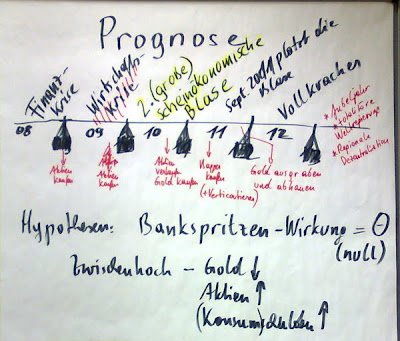 Prognose
Finanz-
krise
Wirtschafts-
krise
2. (große)
scheinökonomische
Blase
Sept. 2011 platzt die
Blase
Vollkrachen
08
09
10
11
12
Aktien
kaufen
Aktien
kaufen
Aktien
verkaufen
Gold kaufen
kaufen
(+Verticontieren)
Gold ausgraben
und abhauen
* totalitäre
Weltregierung
* Regionale
Dezentralisation
Hypothesen: Bankspritzen-Wirkung = 0
(null)
Zwischenhoch - Gold ↓
Aktien ↑
(Konsum)schulden ↑